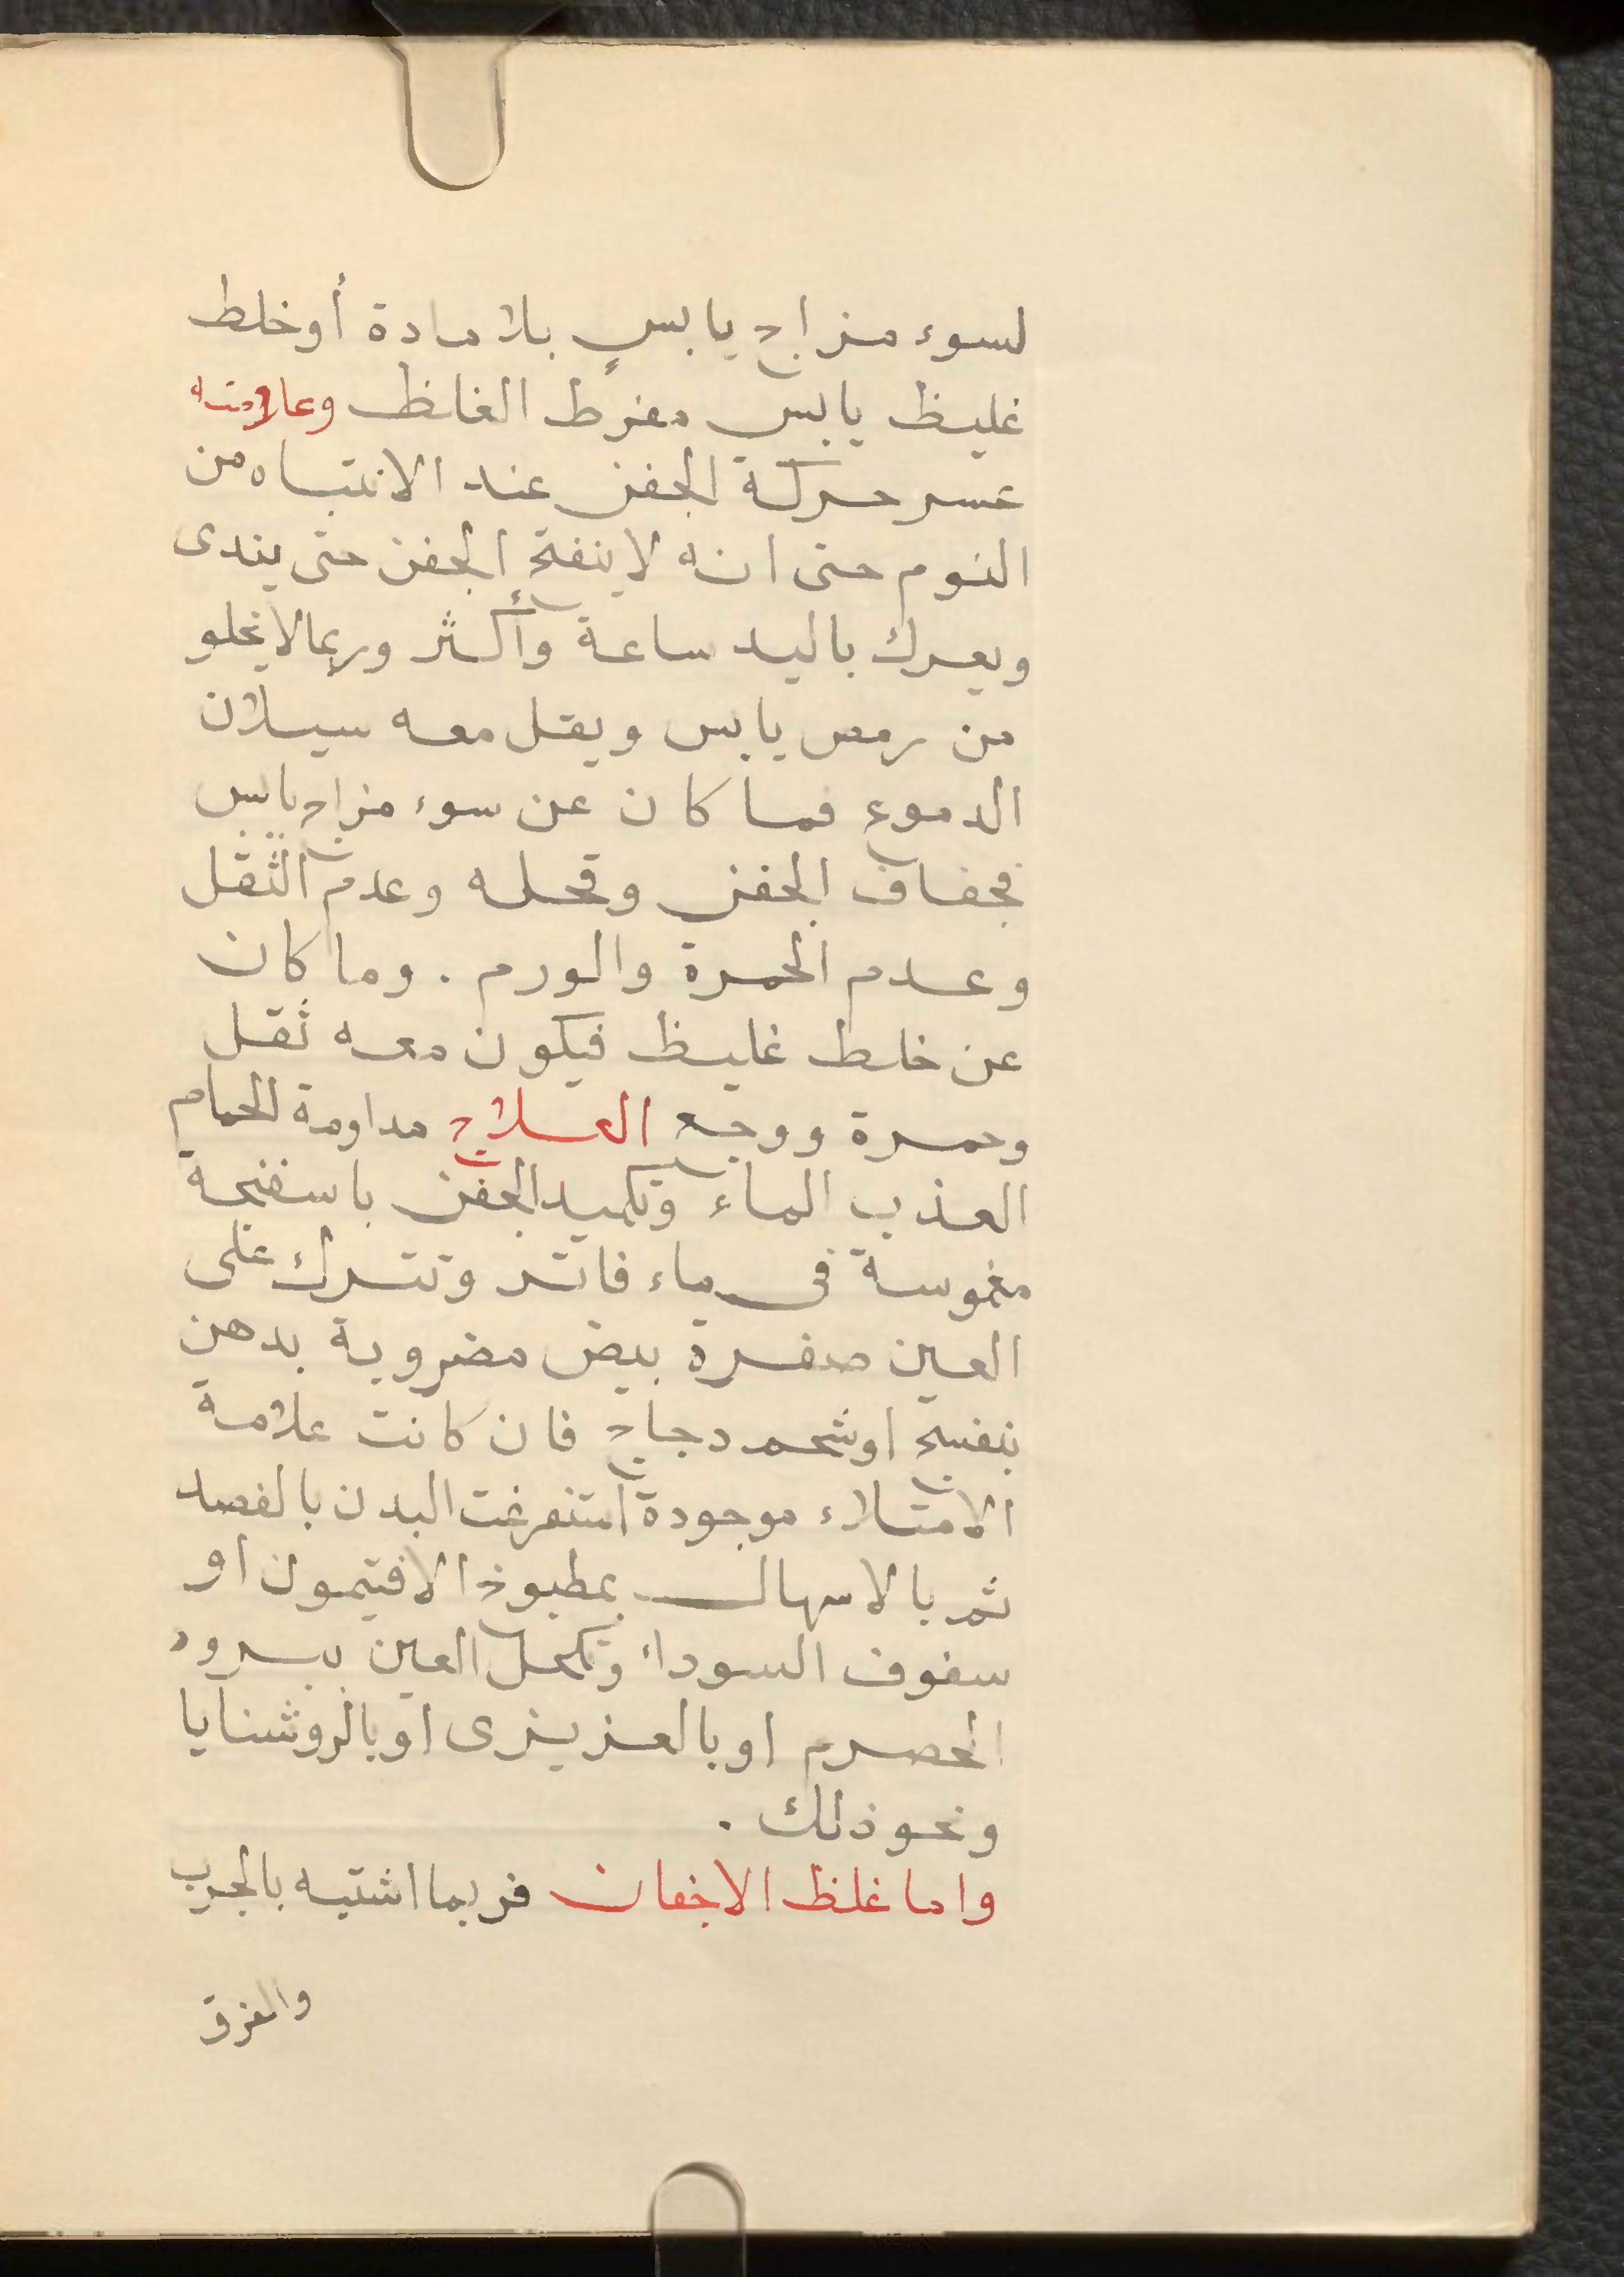 لسوء مزاج يابسٍ بلا مادة أوخلط
غليظ يابس مفرط الغلظ وعلامته
عسر حركة الجفن عند الانتباه من
النوم حتى انه لا ينفتح الجفن حتى يندى
ويعرك باليد ساعة وأكثر وربما لا يخلو
من رمص يابس ويقل معه سيلان
الدموع فما كان عن سوء مزاج يابس
فجفاف الجفن وقحله وعدم الثقل
وعدم الحمرة والورم . وما كان
عن خلط غليظ فيكون معه ثقل
وحمرة ووجع العلاج مداومة الحمام
العذب الماء وتكميد الجفن باسفنجة
مغموسة فى ماء فاتر وتترك على
العين صفرة بيض مضروبة بدهن
بنفسج اوشحم دجاج فان كانت علامة
الامتلاء موجودة استفرغت البدن بالفصد
ثم بالاسهال بمطبوخ الافتيمون او
سفوف السوداء وتكحل العين ببرود
الحصرم اوبالعزيزى اوبالروشنايا
ونحو ذلك .
واما غلظ الاجفان فربما اشتبه بالجرب
والفرق